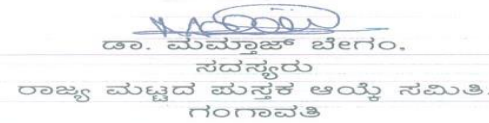 ಡಾ. ಮಮ್ತಾಜ್ ಬೇಗಂ,
ಸದಸ್ಯರು
ರಾಜ್ಯ ಮಟ್ಟದ ಪುಸ್ತಕ ಆಯ್ಕೆ ಸಮಿತಿ.
ಗಂಗಾವತಿ